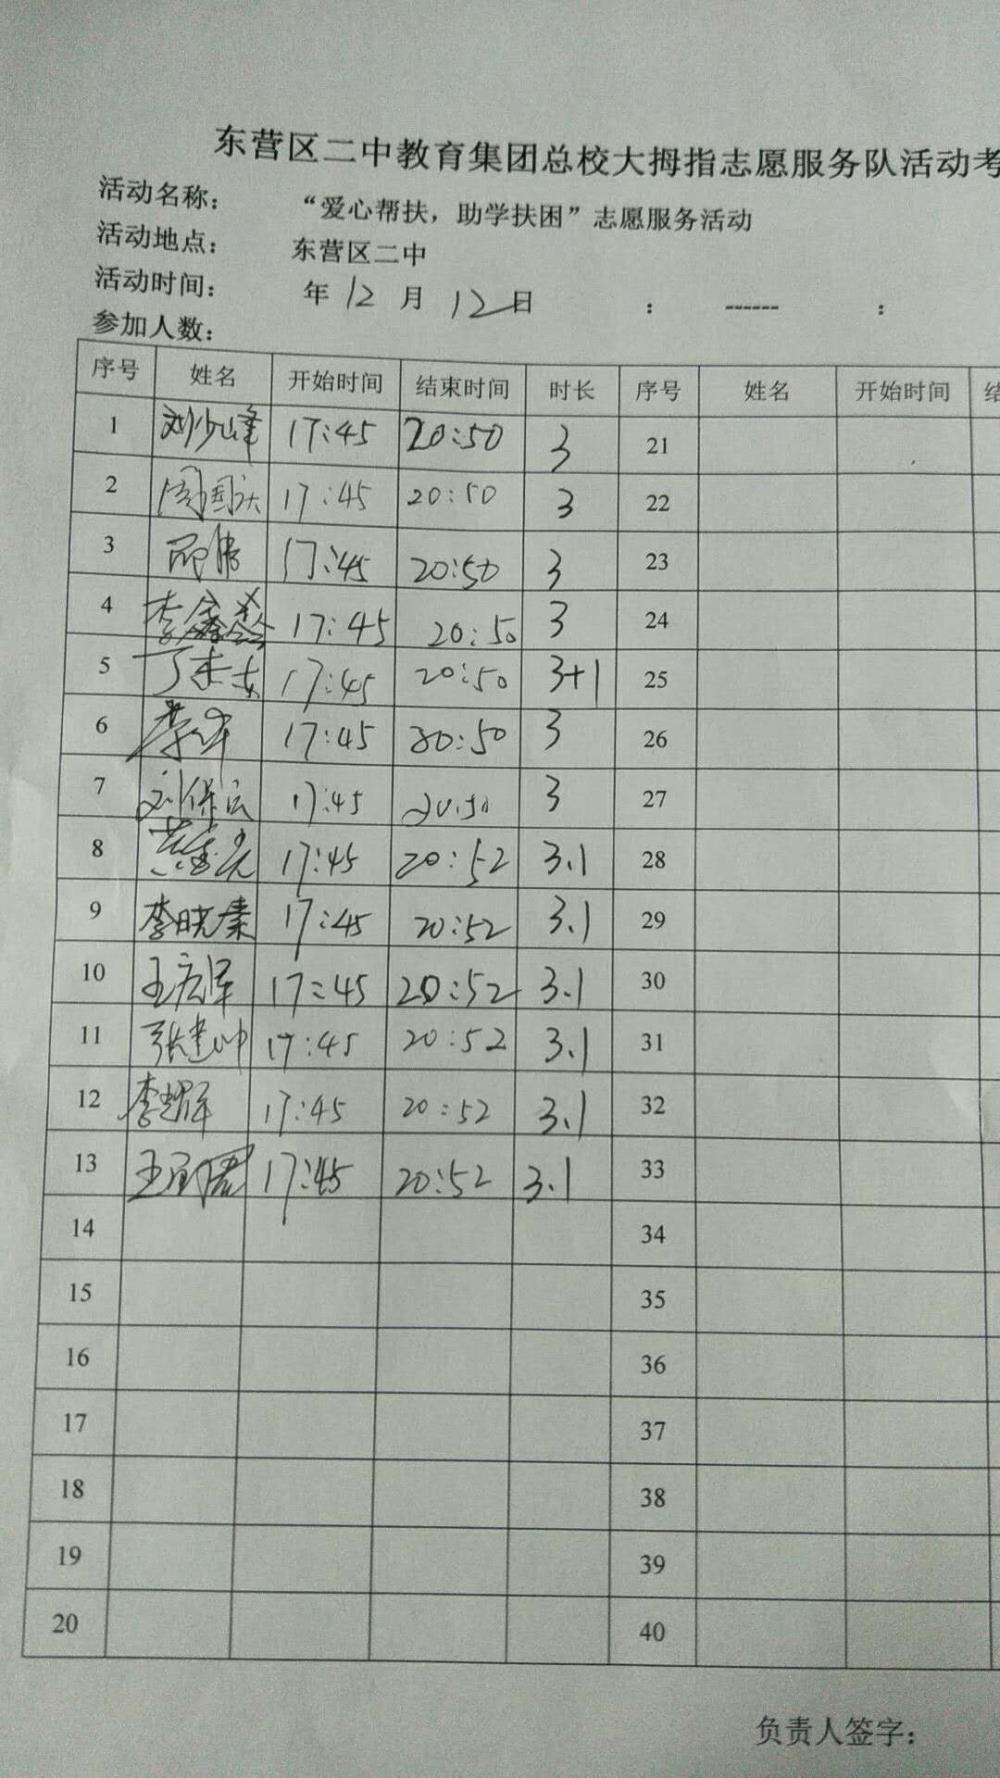 东营区二中教育集团总校大拇指志愿服务队活动考
活动名称： “爱心帮扶，助学扶困”志愿服务活动
活动地点： 东营区二中
活动时间： 年 12 月 12 日 ： ------ ：
参加人数：
序号 姓名 开始时间 结束时间 时长 序号 姓名 开始时间 结
1 刘少峰 17:45 20:50 3 21
2 周国庆 17:45 20:50 3 22
3 17:45 20:50 3 23
4 李鑫 17:45 20:50 3 24
5 17:45 20:50 3+1 25
6 17:45 20:50 3 26
7 刘保 17:45 20:50 3 27
8 17:45 20:52 3.1 28
9 李晓 17:45 20:52 3.1 29
10 王宏军 17:45 20:52 3.1 30
11 张建帅 17:45 20:52 3.1 31
12 李 17:45 20:52 3.1 32
13 王 17:45 20:52 3.1 33
14 34
15 35
16 36
17 37
18 38
19 39
20 40
负责人签字：